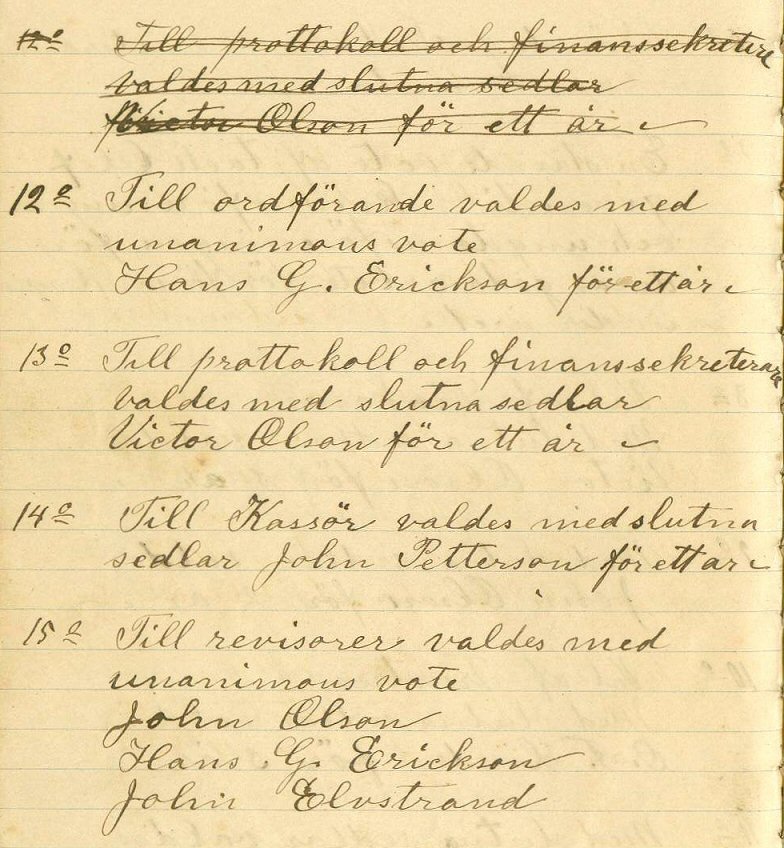 12o Till prottokoll och finanssekretere
valdes med slutna sedlar
Victor Olson för ett år
12o Till ordförande valdes med
unanimous vote
Hans G. Erickson för ett år
13o Till prottokoll och finanssekreterare
valdes med slutna sedlar
Victor Olson för ett år
14o Till Kassör valdes med slutna
sedlar John Petterson för ett år
15o Till revisorer valdes med
unanimous vote
John Olson
Hans G. Erickson
John Elvstrand